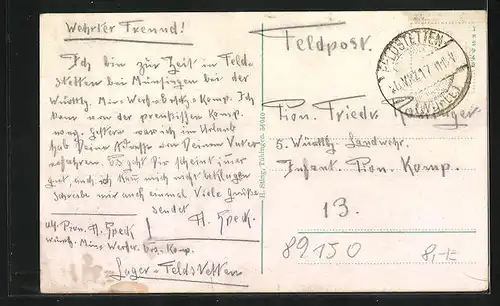 Wehrter Freund!
Ich bin zur Zeit in Feld-
stetten bei Münsingen bei der
Württbg. Min-Werf- Komp. Ich
kam von der preußischen Komp.
weg. Gestern war ich in Urlaub
hab Deine Adresse von Deinem Vater
erfahren. Es geht Dir scheint immer
gut, auch ich kann mich nicht beklagen
Schreibe mir auch einmal Viele Grüße
sendet
A. Speck.
Pion. A. Speck
Württ. Min- Werfer Komp.
Lager-Feldstetten
H. Sting, Tübingen.
Feldpost.
FELDSTETTEN
Pion. Friedr.
5. Württbg. Landwehr.
Infant. Pion. Komp.
13.
89150
8,-E